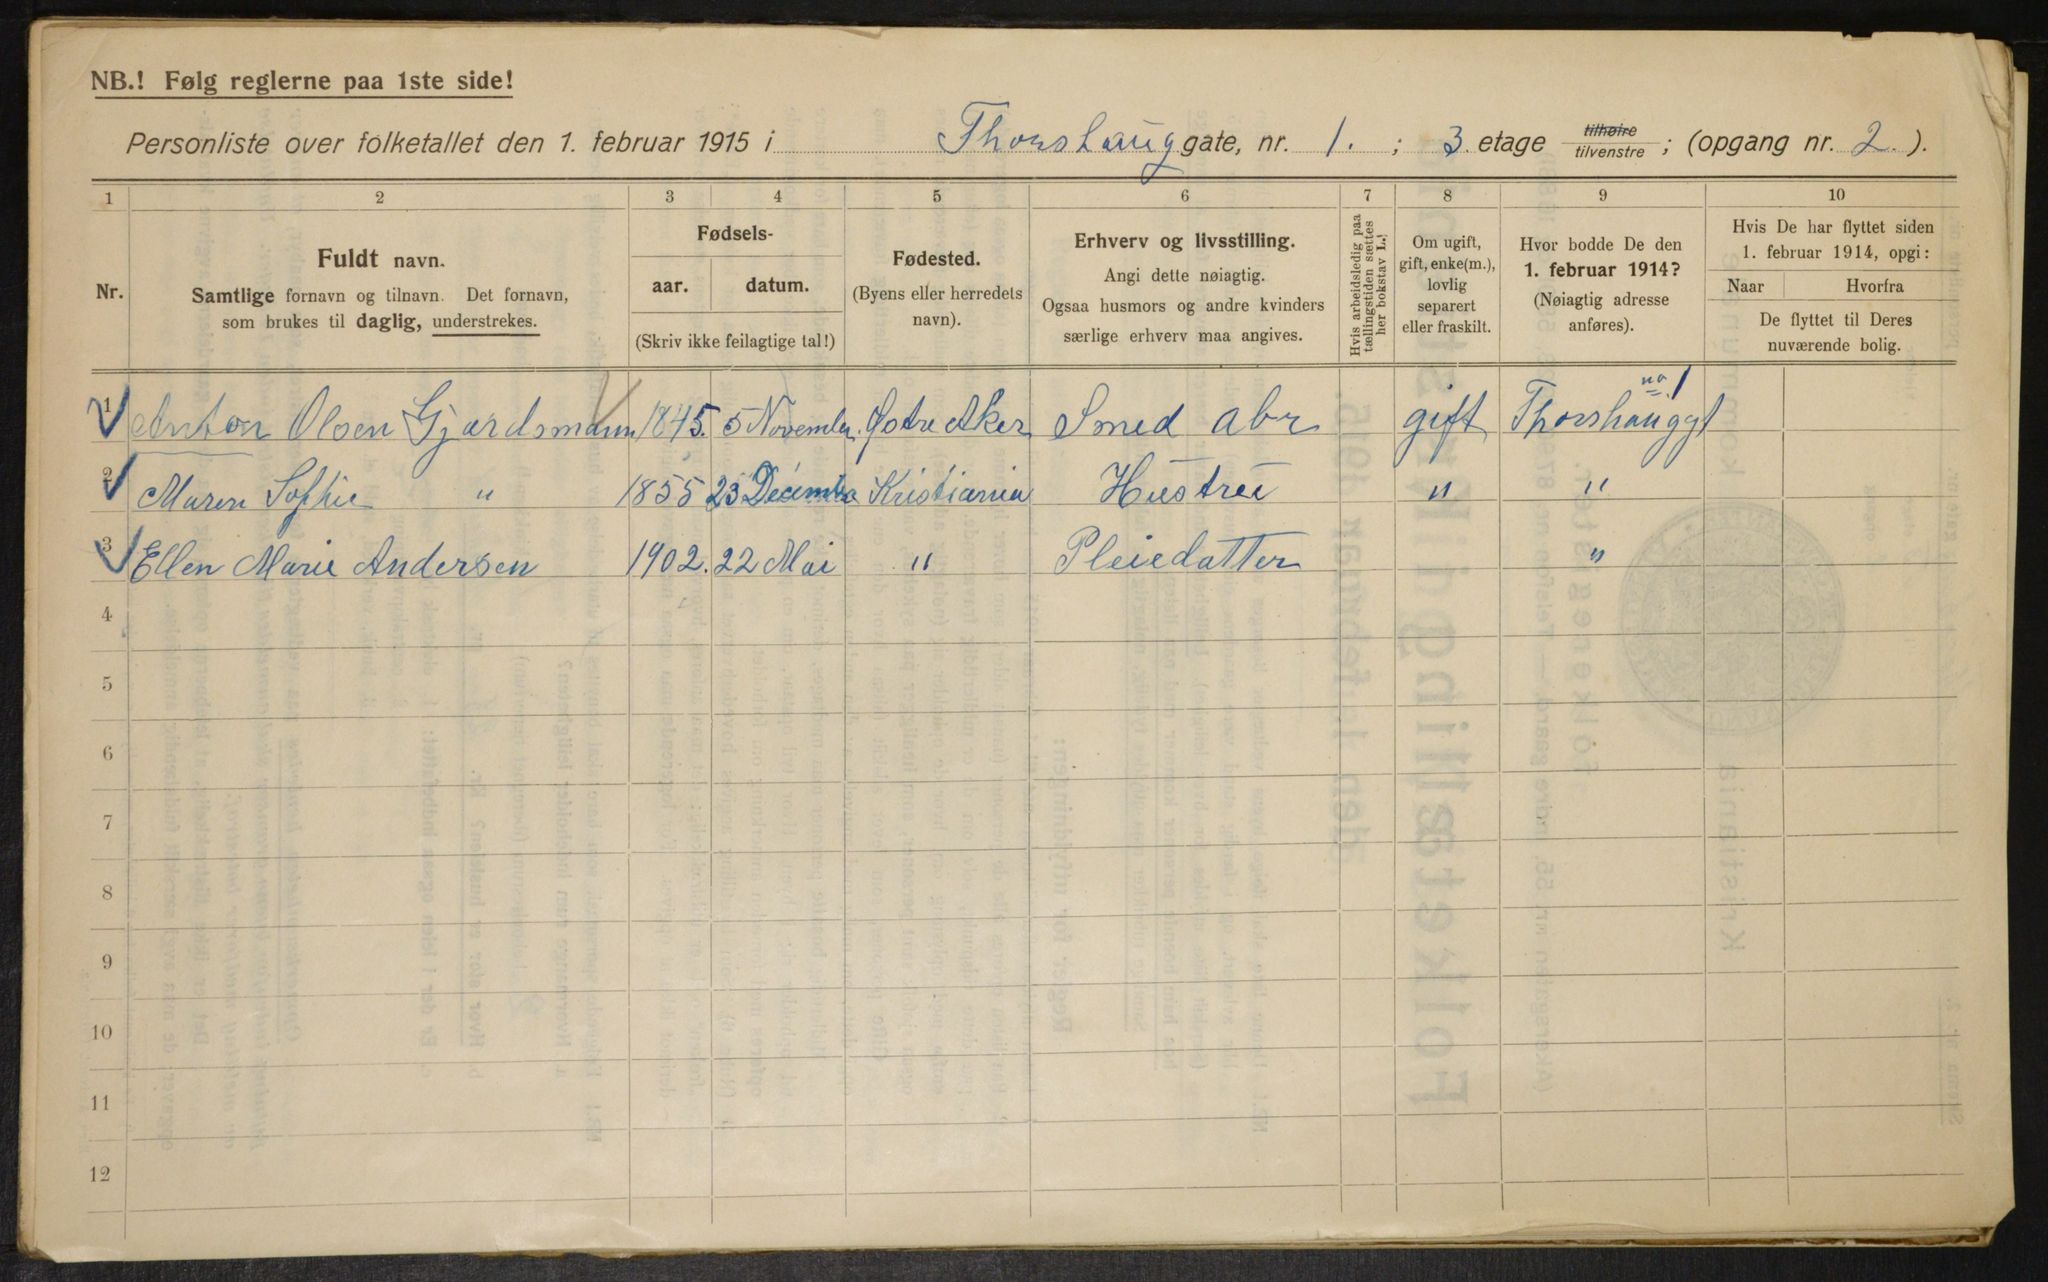 NB.! Følg reglerne paa 1ste side!
Personliste over folketallet den 1. februar 1915 i Thorshaug gate, nr. 1. ; 3. etage tilhøire tilvenstre ; (opgang nr. 2.).
1 2 3 4 5 6 7 8 9 10
Nr.
Fuldt navn.
Samtlige fornavn og tilnavn. Det fornavn,
som brukes til daglig, understrekes.
Fødsels-
aar. datum.
(Skriv ikke feilagtige tal!)
Fødested.
(Byens eller herredets
navn).
Erhverv og livsstilling.
Angi dette nøiagtig.
Ogsaa husmors og andre kvinders
særlige erhverv maa angives.
Hvis arbeidsledig paa
tællingstiden sættes
her bokstav L.!
Om ugift,
gift, enke(m.),
lovlig
separert
eller fraskilt.
Hvor bodde De den
1. februar 1914?
(Nøiagtig adresse
anføres).
Hvis De har flyttet siden
1. februar 1914, opgi:
Naar Hvorfra
De flyttet til Deres
nuværende bolig.
1 Anton Olsen Gjærdsmann 1845. 5 November. Østre Aker Smed abr gift Thorshauggt no 1
2 Maren Sofhie " 1855 23 December Kristiania Hustru " "
3 Ellen Marie Andersen 1902. 22 Mai " Pleiedatter "
4
5
6
7
8
9
10
11
12